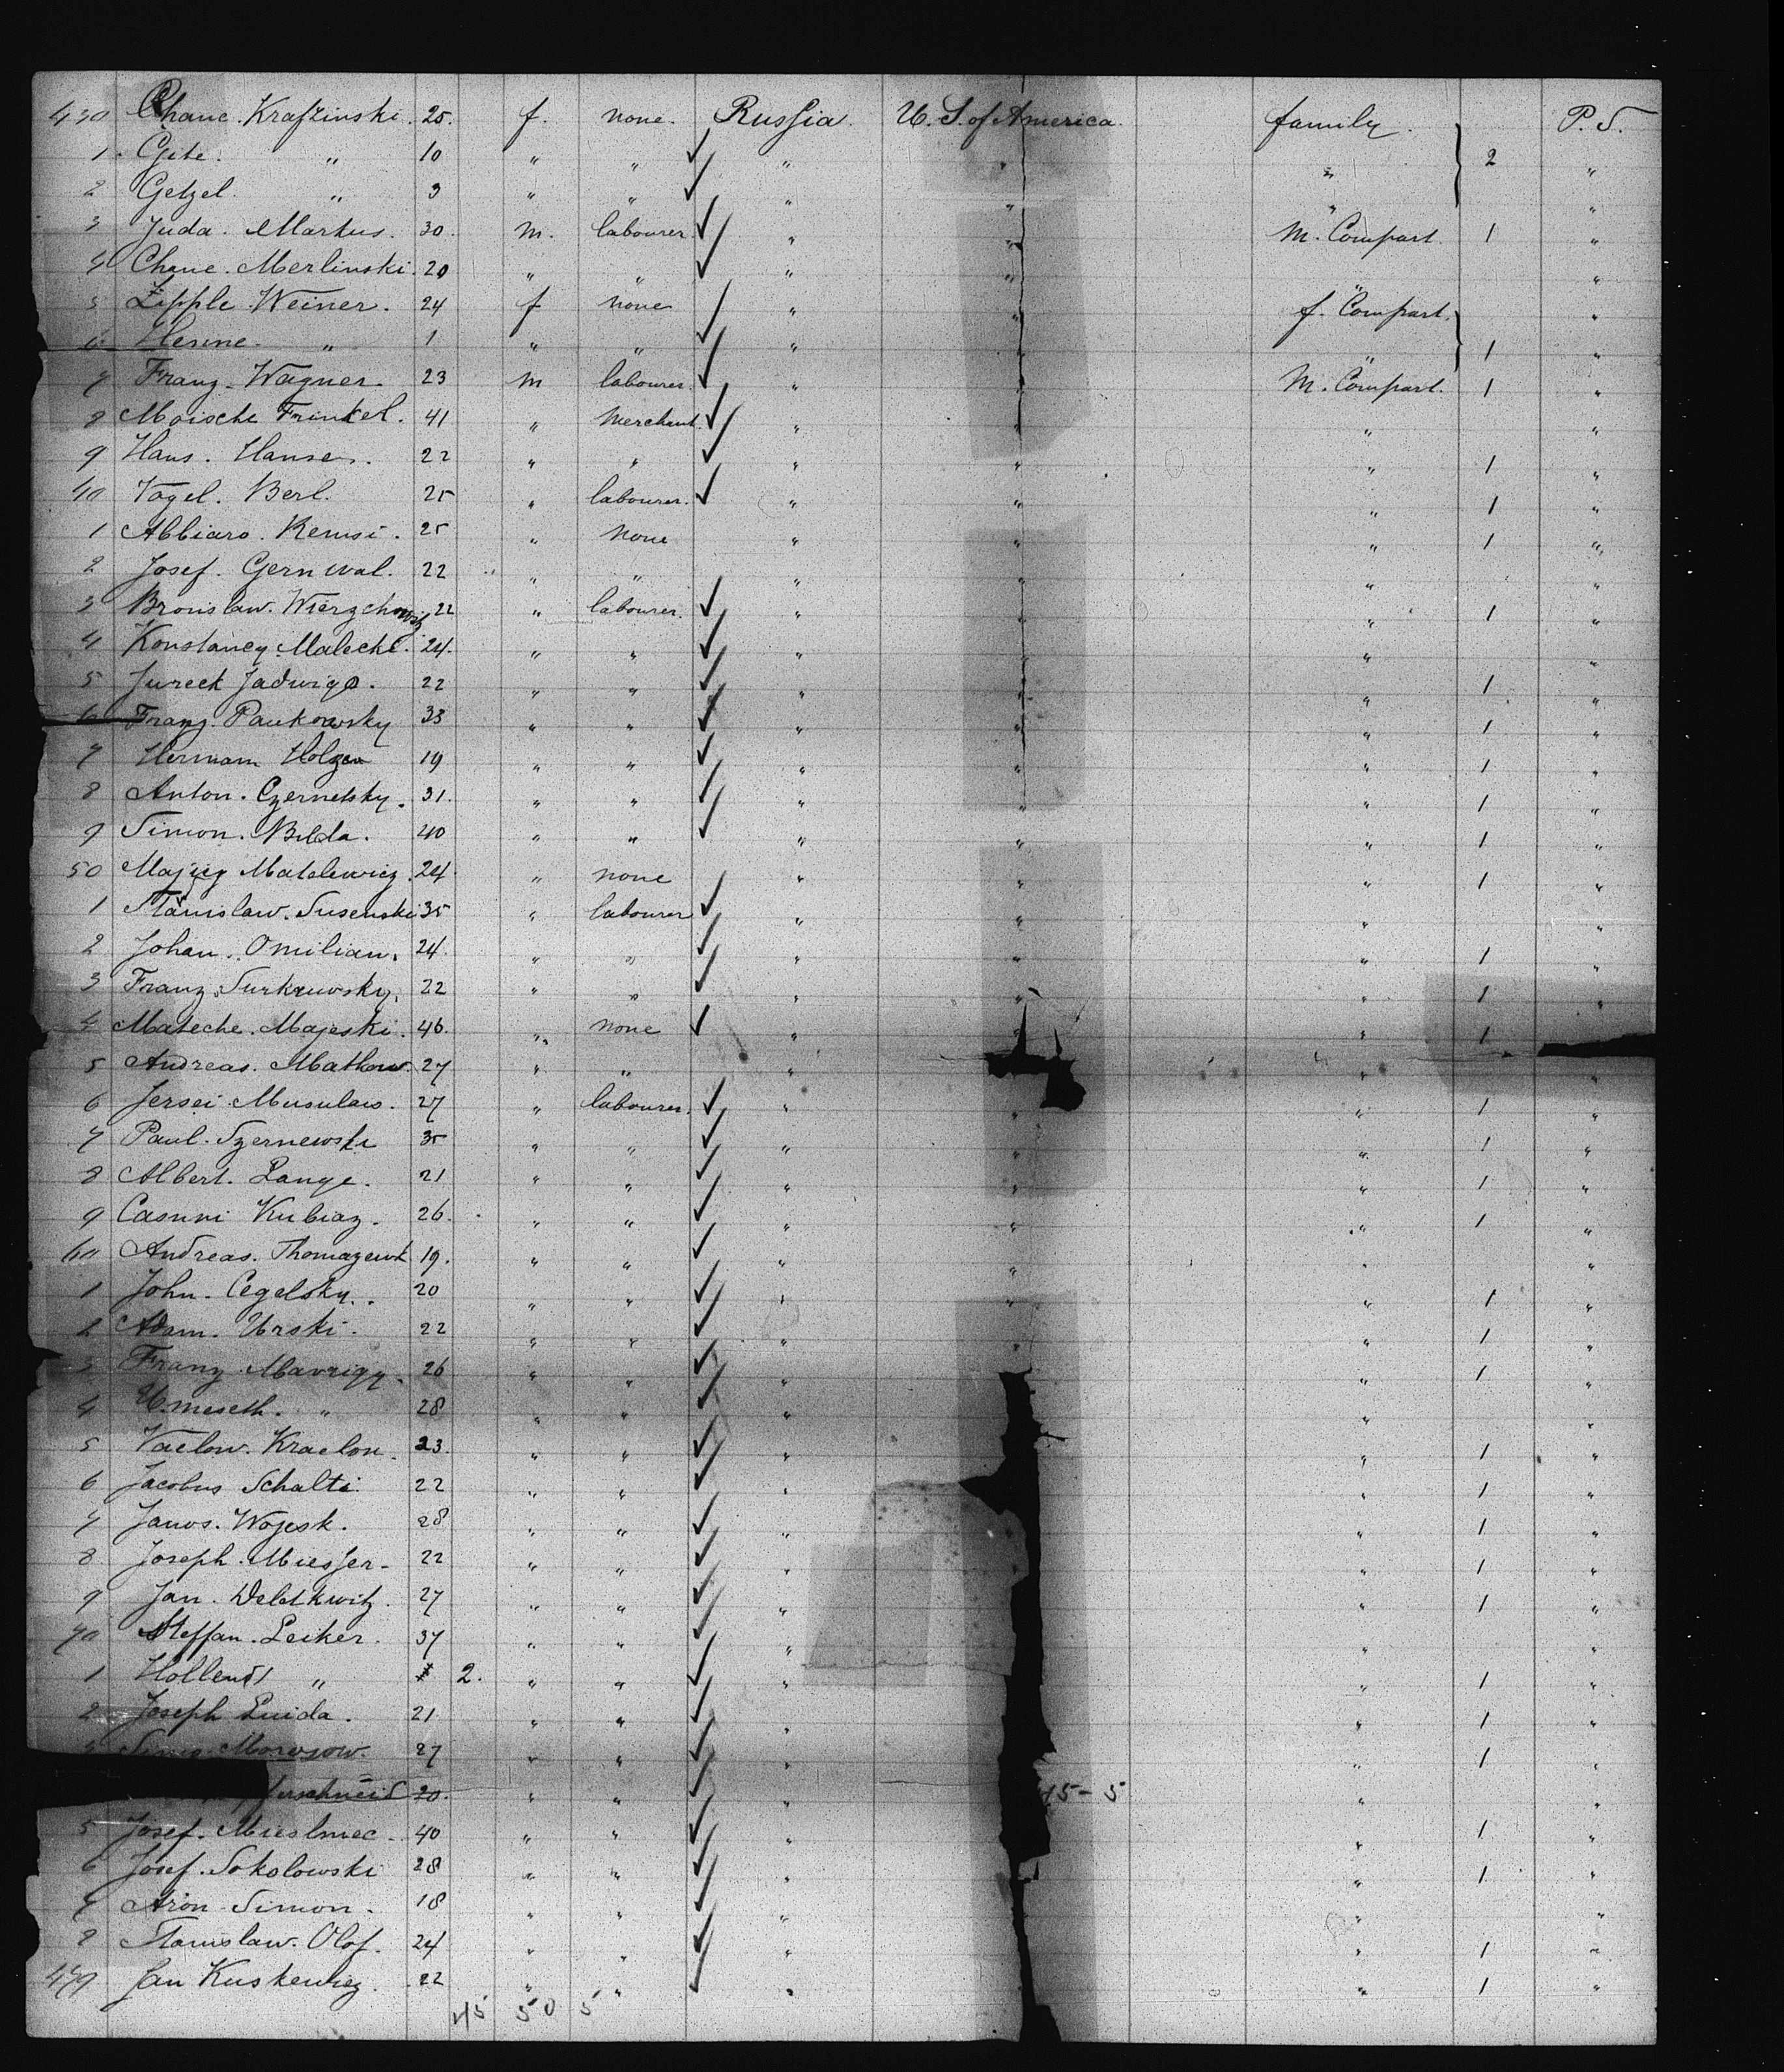 430 Chane. Krafzinski. 25. f. none. Russia. U. S. of America. family. P. S.
1. Gite. " 10 " " " " " 2 "
2 Getzel. " 9 " " " " " "
3 Juda. Markus. 30. m. labourer. " " M. Compart. 1 "
4 Chane. Merlinski. 20 " " " " " "
5 Zipple Weiner. 24 f none " " f. Compart. "
6 Henne. " 1 " " " " " 1 "
7 Franz. Wagner. 23 m labourer. " " M. Compart. 1 "
8 Moische Frinkel. 41 " Merchant. " " " "
9 Hans. Hansen. 22 " " " " " 1 "
40 Vogel. Berl. 25 " labourer. " " " 1 "
1 Abbiaro. Remsi. 25 " none " " " 1 "
2 Josef. Gernwal. 22 " " " " " "
3 Bronislaw. Wierzchowitz 22 " labourer. " " " 1 "
4 Konstancy. Malecki. 24. " " " " " "
5 Jureck Jadwiga. 22 " " " " " 1 "
6 Franz. Paukowsky 33 " " " " " 1 "
7 Hermann Holzen 19 " " " " " 1 "
8 Anton. Czernetsky. 31. " " " " " 1 "
9 Simon. Bilda. 40 " " " " " 1 "
50 Matelewicz. 24. " none " " " 1 "
1 Stanislaw. Susenski 35 " labourer " " " "
2 Johan. Omilian. 24. " " " " " 1 "
3 Franz. Surkruwsky. 22 " " " " " 1 "
4 Mateche. Majeski. 46. " none " " " 1
5 Andreas. Mathow. 27 " " " " "
6 Jersei Musulaw. 27 " labourer. " " " 1 "
7 Paul. Szernewski 35 " " " " " 1 "
8 Albert. Lange. 21 " " " " " 1 "
9 Casimi Kubiaz. 26. " " " " " 1 "
60 Andreas. Thomazewk 19. " " " " " "
1 John. Cegelsky. 20 " " " " " 1 "
2 Adam. Urski. 22 " " " " " 1 "
3 Franz Mavrigy. 26 " " " " 1 "
4 " 28 " " " " "
5 Vaclow. Kraclon. 23. " " " " 1 "
6 Jacobus Schalti 22 " " " " 1 "
7 Janos. Wojesk. 28 " " " " 1 "
8 Joseph. Miesser. 22 " " " " 1 "
9 Jan. Deletkwitz. 27 " " " " 1 "
70 Steffan. Leiker. 37 " " " " "
1 Hollend " 2. " " " " 1 "
2 Joseph Luida. 21 " " " " 1 "
3 Morosow. 27 " " " " 1 "
20. " " 45-5 " "
5 Josef. Mieslniec. 40 " " " " 1 "
6 Josef. Sokolowski 28 " " " " 1 "
7 Aron. Simon. 18 " " " " "
8 Stanislaw. Olof. 24 " " " " 1 "
479 Jan Kuskewicz. 22 " " " " 1 "
45 50 5